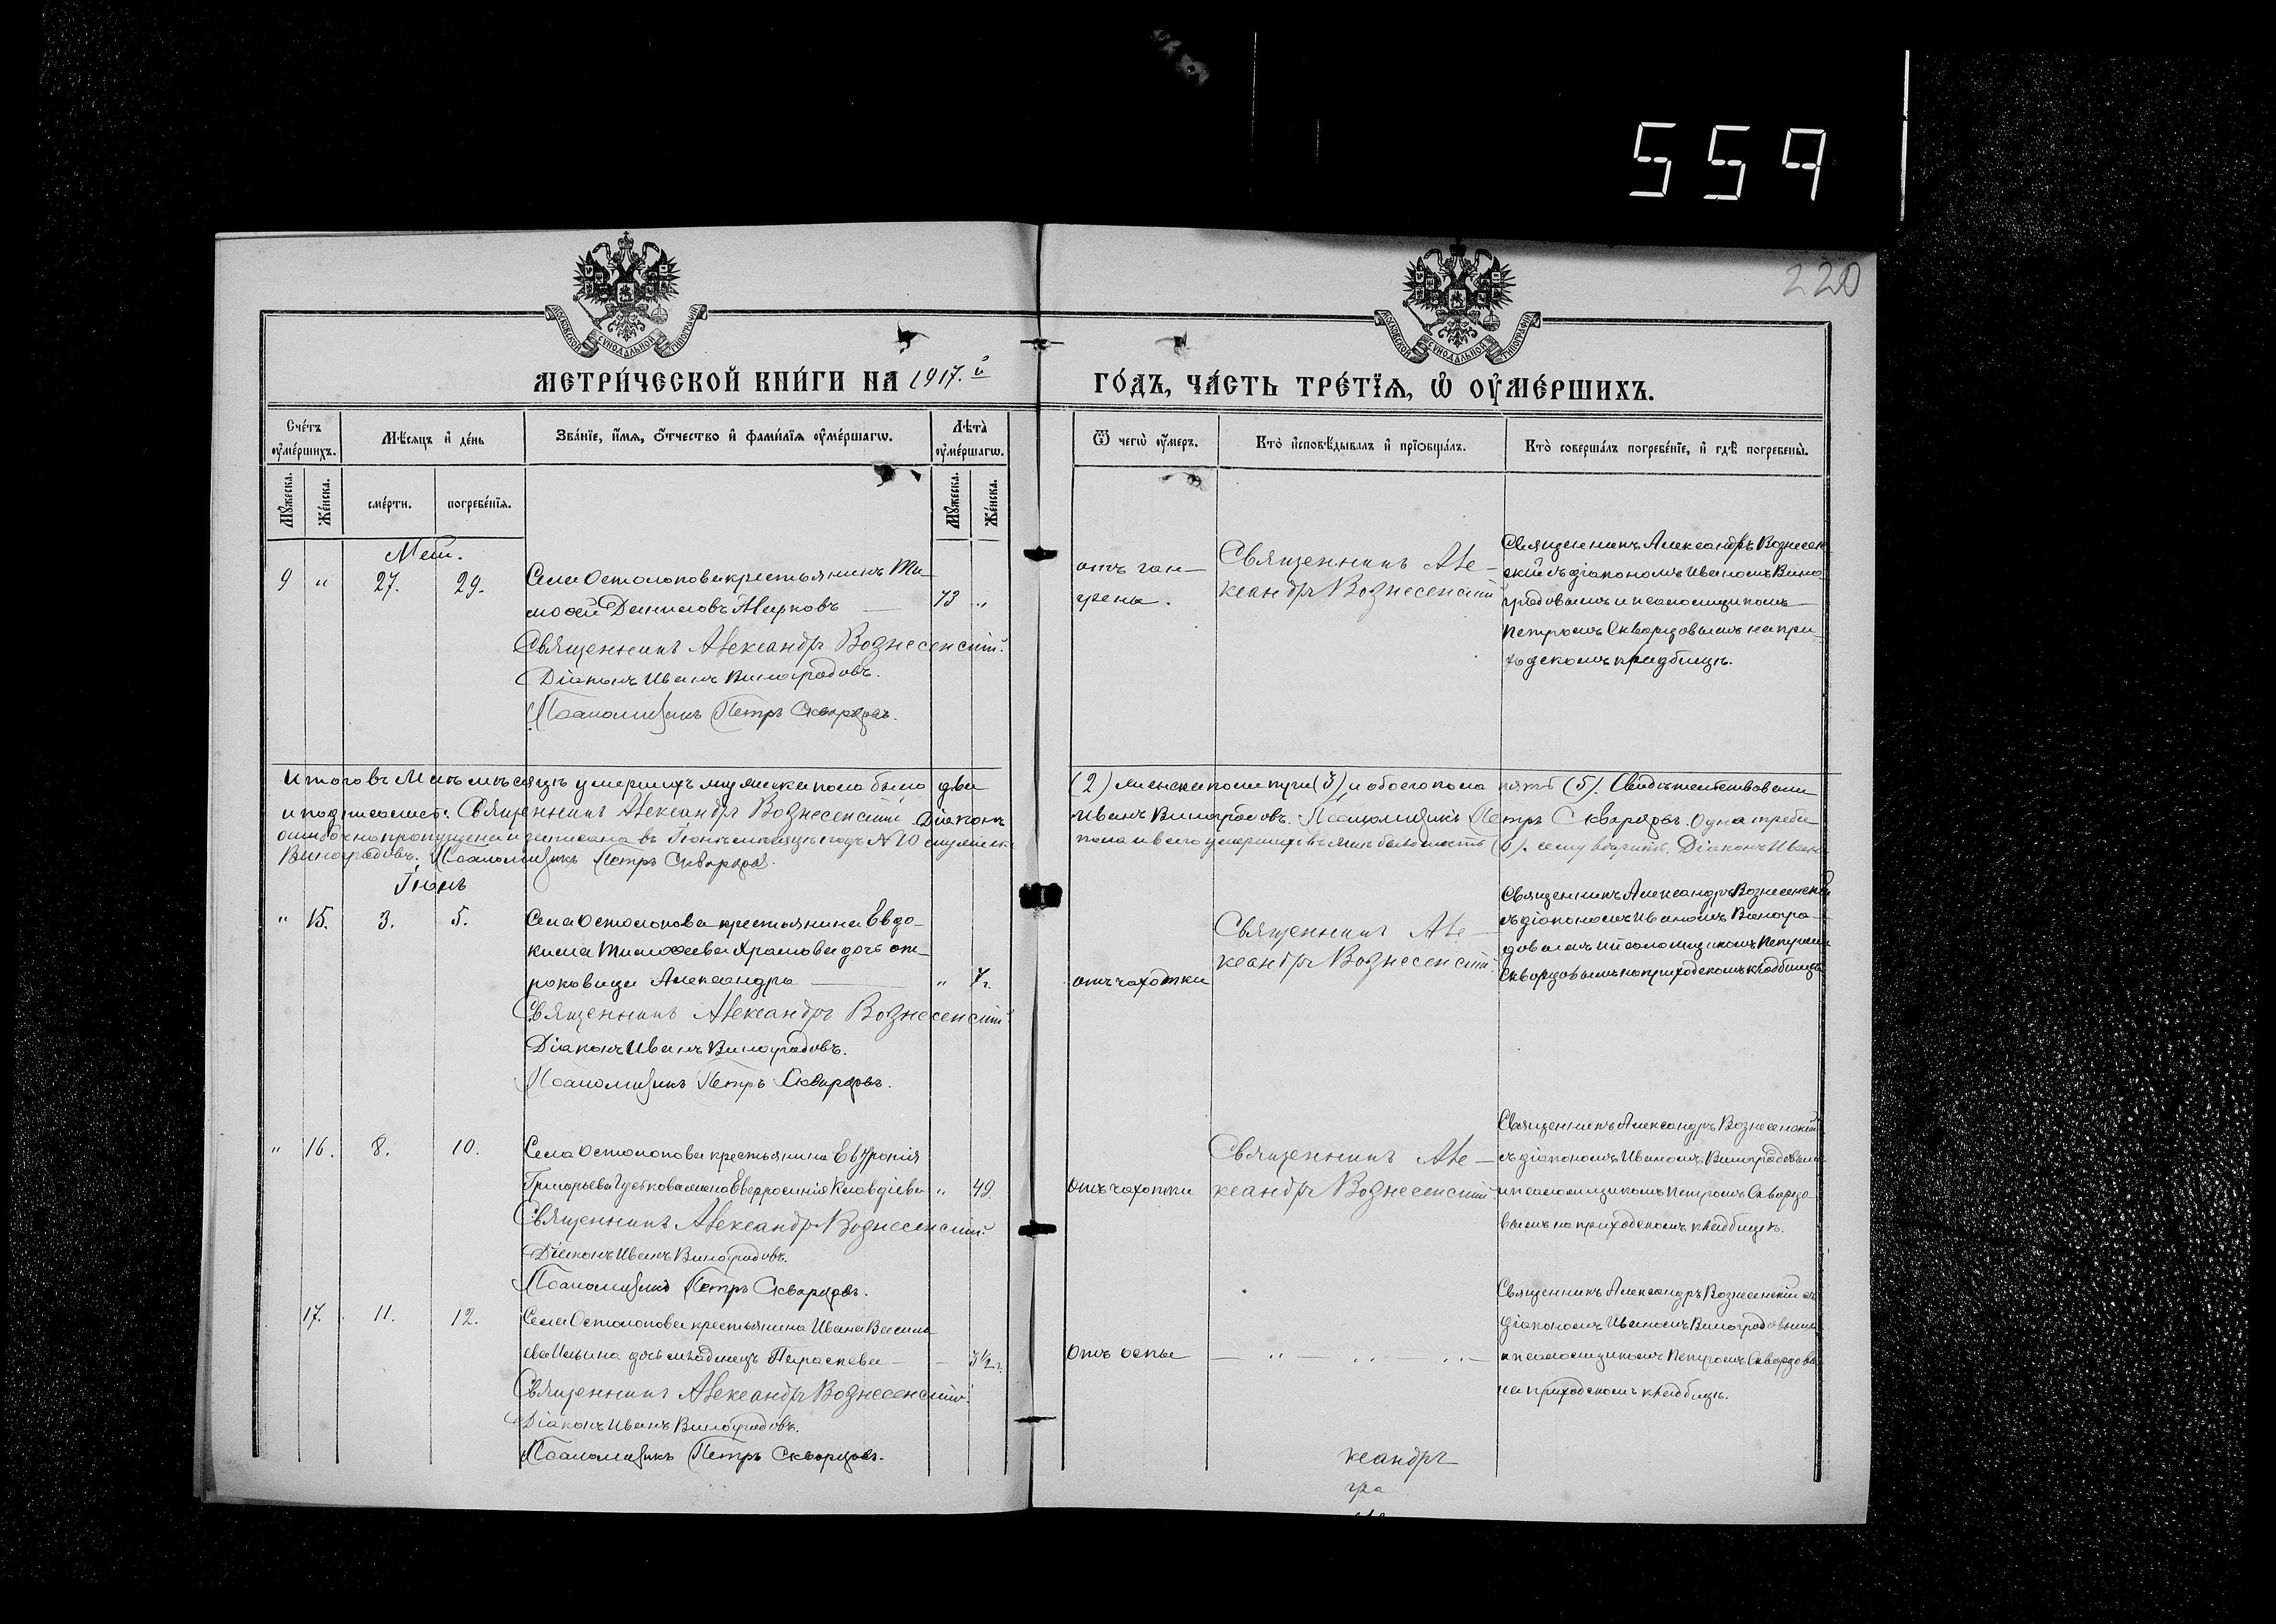 559
220
МОСКОВСКОЙ СѴНОДАЛЬНОЙ ТИПОГРАФІИ
МОСКОВСКОЙ СѴНОДАЛЬНОЙ ТИПОГРАФІИ
МЕТРИ́ЧЕСКОЙ КНИ́ГИ НА 1917.й
ГО́ДЪ, ЧА́СТЬ ТРЕ́ТІѦ, Ѡ҆ ОУ҆МЕ́РШИХЪ.
Сче́тъ оу҆ме́ршихъ.
Мѣ́сѧцъ и҆ де́нь
Зва́нїе, и҆́мѧ, ѻ҆́тчество и҆ фами́лїѧ оу҆ме́ршагѡ.
Лѣ̀та оу҆ме́ршагѡ.
Ѿ чегѡ̀ оу҆́меръ.
Кто̀ и҆сповѣ́дывалъ и҆ прїѡбща́лъ.
Кто̀ соверша́лъ погребе́нїе, и҆ гдѣ̀ погребены̀.
Мꙋ́жеска.
Же́нска.
сме́рти.
погребе́нїѧ.
Мꙋ́жеска.
Же́нска.
Май.
9 " 27. 29.
Села Остолопова крестьянинъ Ти-
моѳей Даниловъ Марковъ — 73 "
Священникъ Александръ Вознесенскій.
Діаконъ Иванъ Виноградовъ.
Псаломщикъ Петръ Скворцовъ.
отъ ган-
грены.
Священникъ Але-
ксандръ Вознесенскій
Священникъ Александръ Вознесен
скій съ діакономъ Иваномъ Вино
градовымъ и псаломщикомъ
Петромъ Скворцовымъ на при-
ходскомъ кладбищѣ.
Итого въ Маѣ мѣсяцѣ умершихъ мужеска пола было два
(2) женска пола три (3), и обоего пола пять (5). Свидѣтельствовали
и подписались: Священникъ Александръ Вознесенскій. Діаконъ
Иванъ Виноградовъ. Псаломщикъ Петръ Скворцовъ. Одна треба
ошибочно пропущена и записана въ Іюнѣ мѣсяцѣ подъ №10 мужеска
пола и всего умершихъ въ Маѣ было шесть (6). сему вѣрить. Діаконъ Иванъ
Виноградовъ. Псаломщикъ Петръ Скворцовъ.
Іюнь
" 15. 3. 5.
Села Остолопова крестьянина Евдо-
кима Тимоѳеева Храмова дочь от-
роковица Александра — " 7 г.
Священникъ Александръ Вознесенскій
Діаконъ Иванъ Виноградовъ.
Псаломщикъ Петръ Скворцовъ.
отъ чахотки
Священникъ Але-
ксандръ Вознесенскій.
Священникъ Александръ Вознесенскій
съ діакономъ Иваномъ Виногра-
довымъ и псаломщикомъ Петромъ
Скворцовымъ на приходскомъ кладбищѣ
" 16. 8. 10.
Села Остолопова крестьянина
Григорьева жена Евфросинія Клавдіева " 49.
Священникъ Александръ Вознесенскій.
Діаконъ Иванъ Виноградовъ.
Псаломщикъ Петръ Скворцовъ.
Отъ чахотки
Священникъ Але-
ксандръ Вознесенскій
Священникъ Александръ Вознесенскій
съ діакономъ Иваномъ Виноградовымъ
и псаломщикомъ Петромъ Скворцо
вымъ на приходскомъ кладбищѣ.
17. 11. 12.
Села Остолопова крестьянина Ивана Василь
ева Ильина дочь младенецъ Параскева — 3½ г.
Священникъ Александръ Вознесенскій.
Діаконъ Иванъ Виноградовъ.
Псаломщикъ Петръ Скворцовъ.
Отъ оспы
Священникъ Александръ Вознесенскій съ
діакономъ Иваномъ Виноградовымъ
и псаломщикомъ Петромъ Скворцовы
на приходскомъ кладбищѣ.
ксандръ
гра